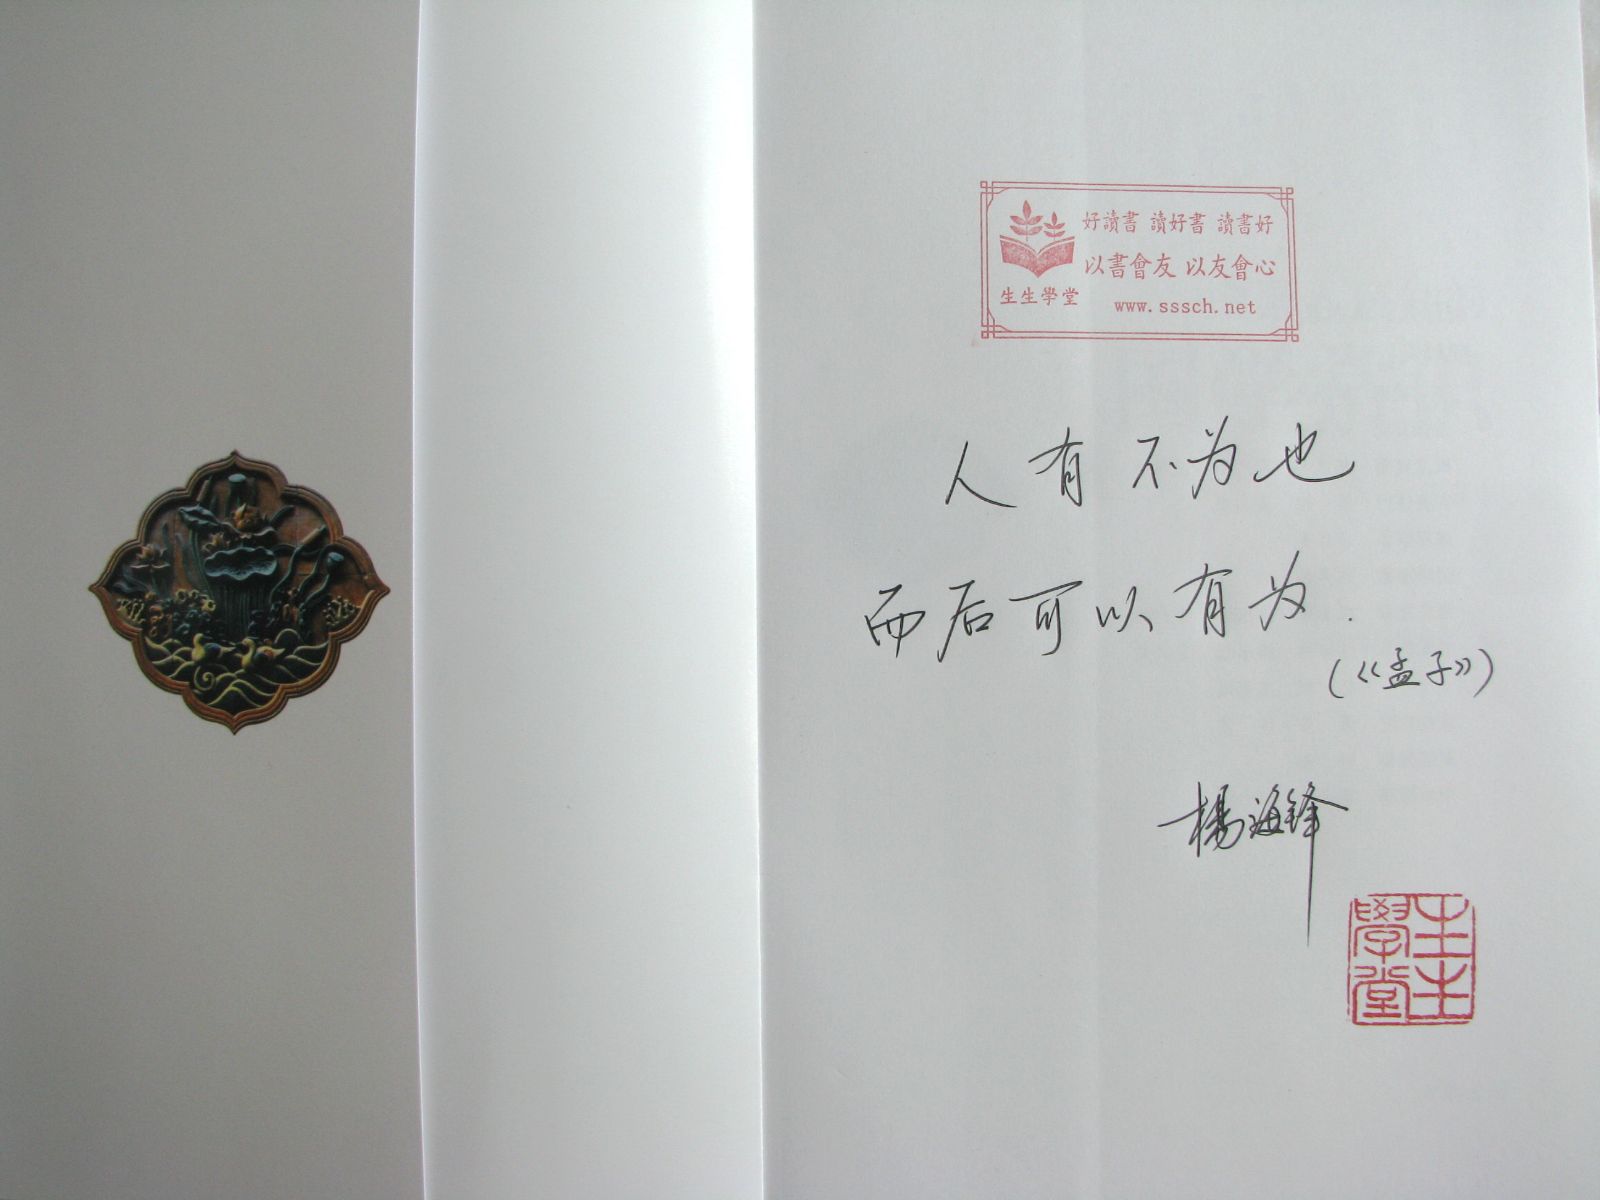 好讀書 讀好書 讀書好
以書會友 以友會心
生生學堂
www.sssch.net
人有不为也
而后可以有为.
(《孟子》)
楊海鋒
生生學堂